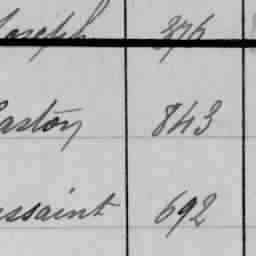 Joseph 376
Gaston 843
ussaint 692